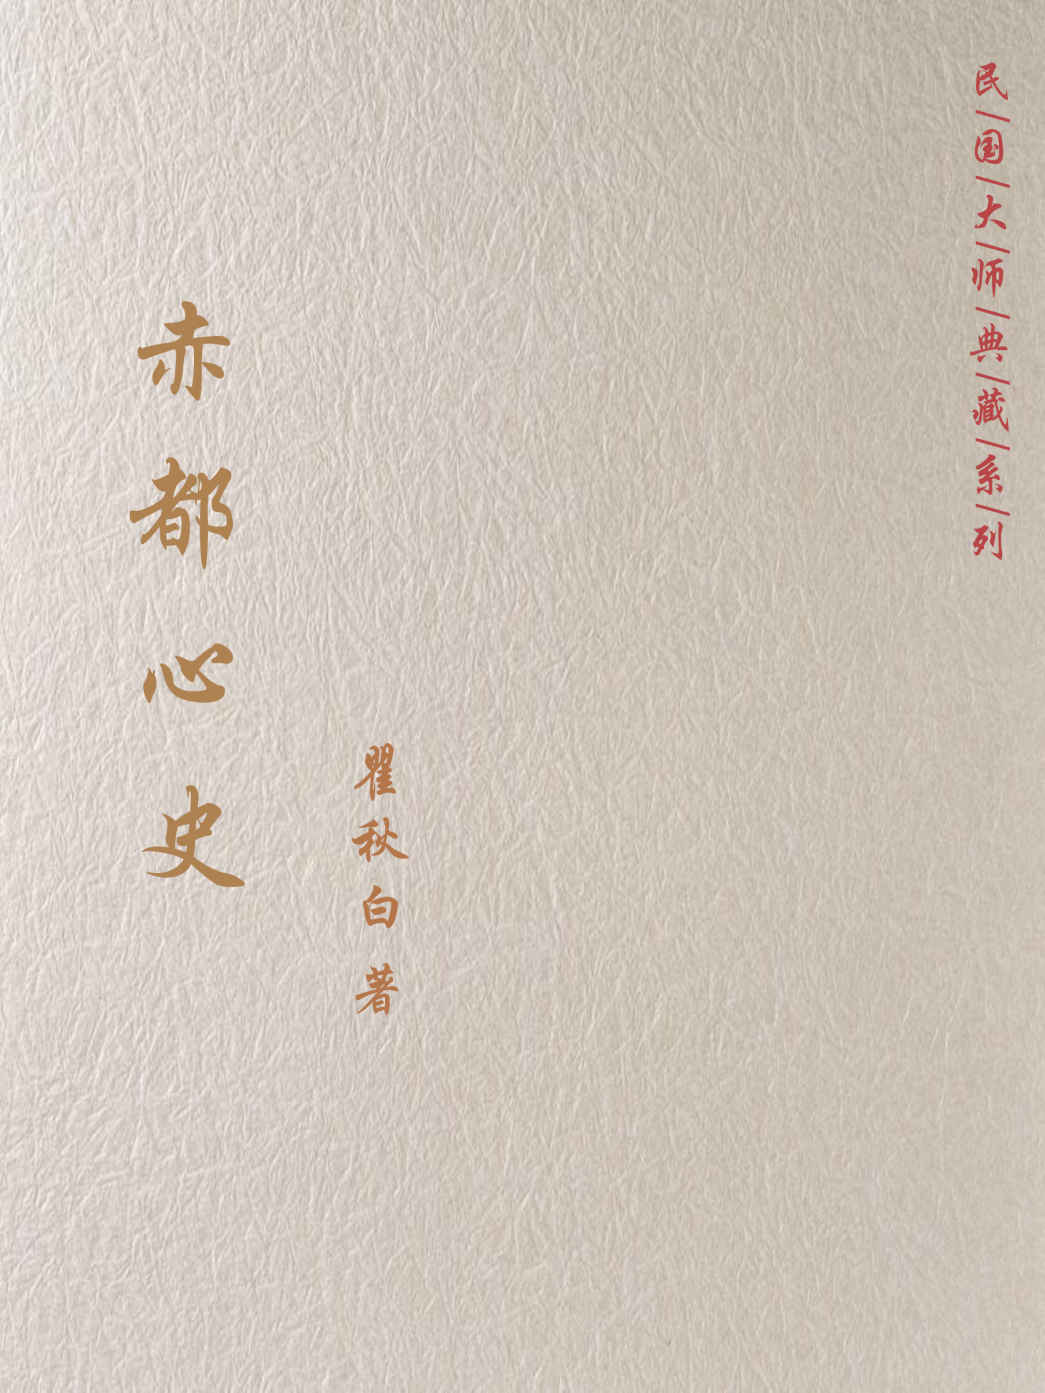 民/国/大/师/典/藏/系/列
赤都心史
瞿秋白著